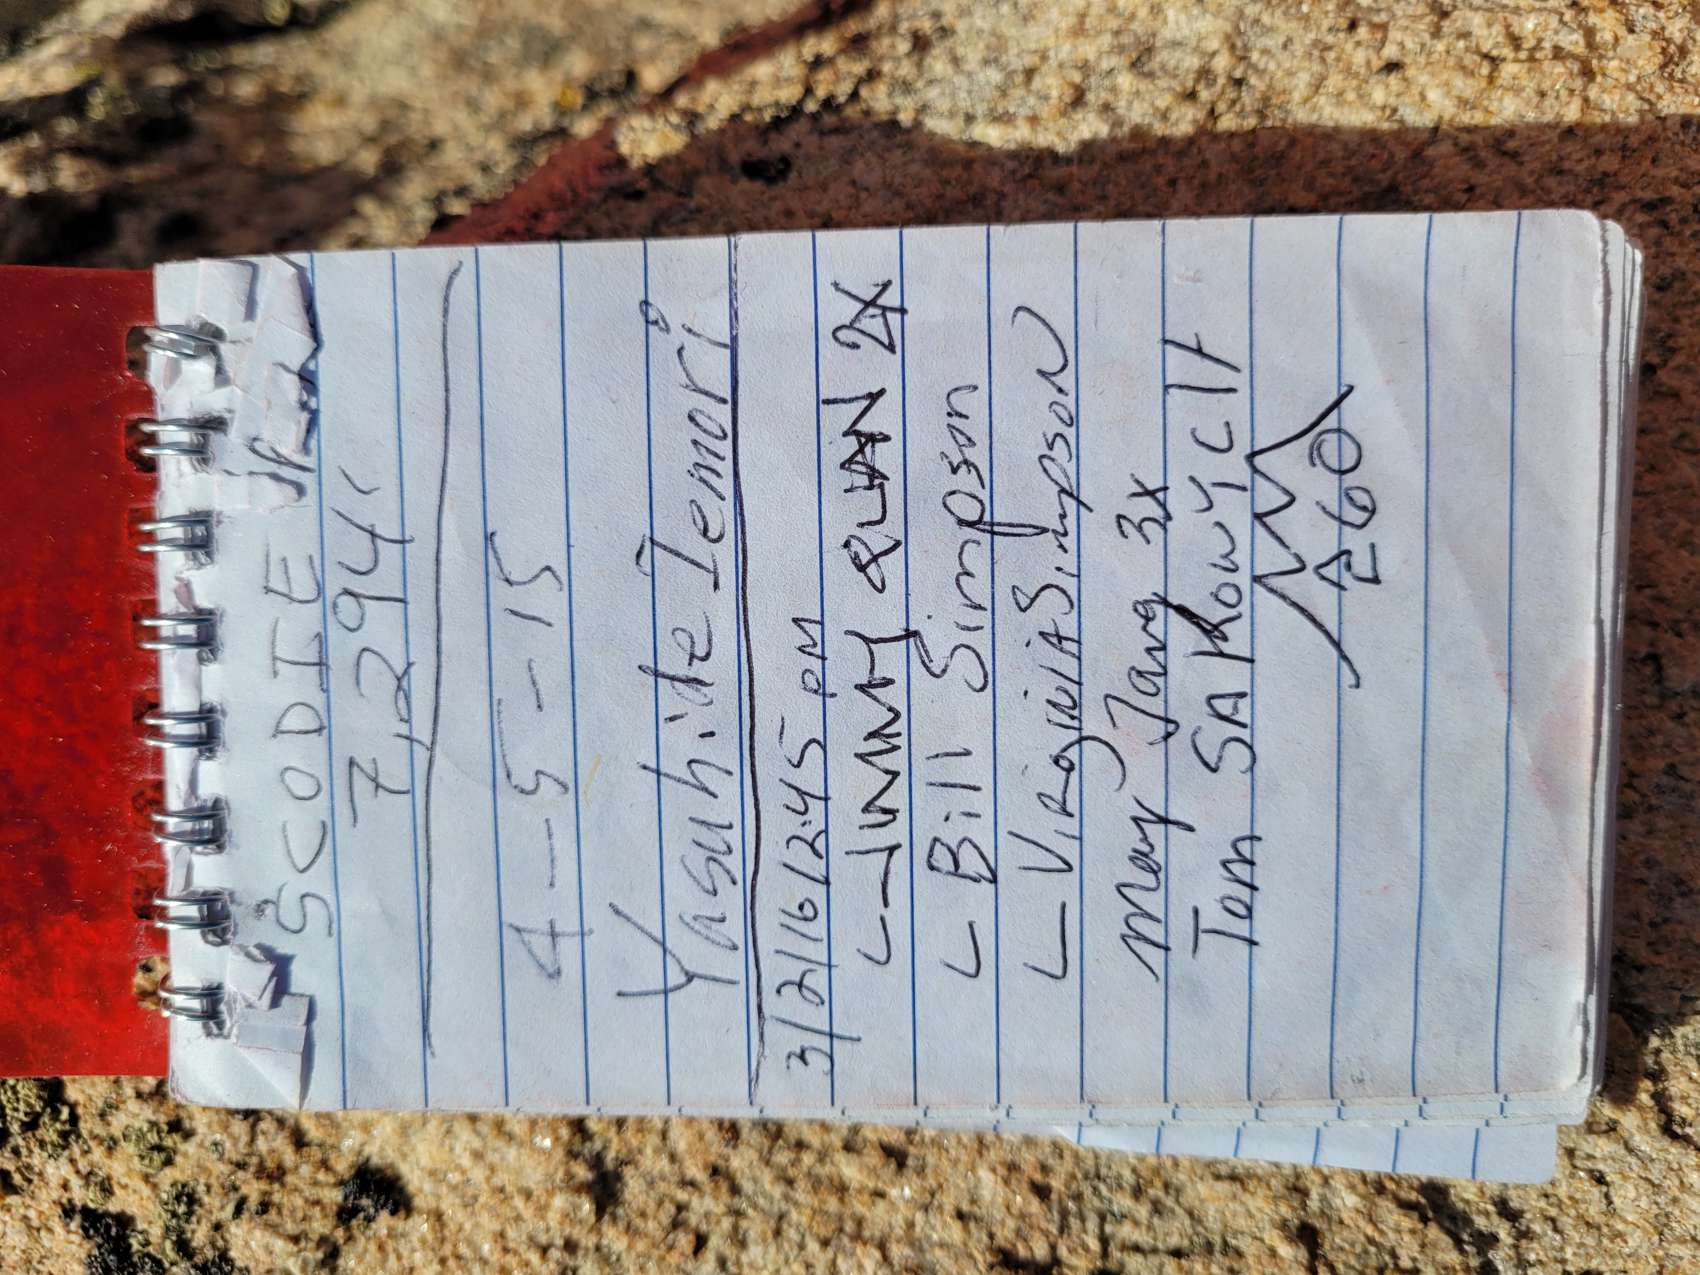 SCODIE
7,294'
4-5-15
Yasuhide Iemori
3/2/16 12:45 PM
JINNY QUAN 2X
Bill Simpson
VIRGINIA SIMPSON
Mary Jang 3x
Tom SAKOWYCH
260